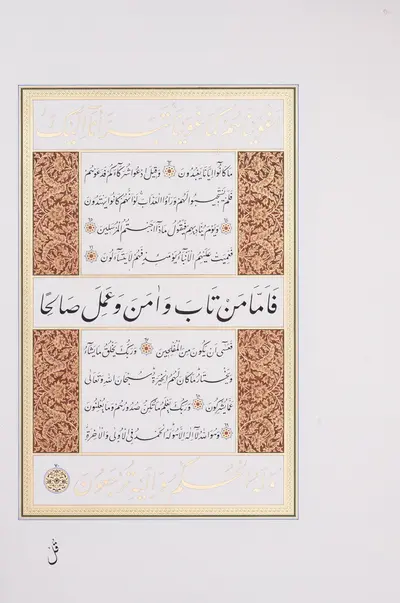 اَغْوَيْناهُمْ كَما غَوَيْنا تَبَرَّأْنا اِلَيْكَ
ما كانُوا اِيّانا يَعْبُدُونَ وَقِيلَ ادْعُوا شُرَكاءَكُمْ فَدَعَوْهُمْ
فَلَمْ يَسْتَجِيبُوا لَهُمْ وَرَاَوُا الْعَذابَ لَوْ اَنَّهُمْ كانُوا يَهْتَدُونَ
وَيَوْمَ يُنادِيهِمْ فَيَقُولُ ماذا اَجَبْتُمُ الْمُرْسَلِينَ
فَعَمِيَتْ عَلَيْهِمُ الْاَنْباءُ يَوْمَئِذٍ فَهُمْ لا يَتَساءَلُونَ
فَاَمّا مَنْ تابَ وَاٰمَنَ وَعَمِلَ صالِحًا
فَعَسى اَنْ يَكُونَ مِنَ الْمُفْلِحِينَ وَرَبُّكَ يَخْلُقُ ما يَشاءُ
وَيَخْتارُ ما كانَ لَهُمُ الْخِيَرَةُ سُبْحانَ اللهِ وَتَعالى
عَمّا يُشْرِكُونَ وَرَبُّكَ يَعْلَمُ ما تُكِنُّ صُدُورُهُمْ وَما يُعْلِنُونَ
وَهُوَ اللهُ لا اِلهَ اِلّا هُوَ لَهُ الْحَمْدُ فِي الْاُولى وَالْاٰخِرَةِ
وَلَهُ الْحُكْمُ وَاِلَيْهِ تُرْجَعُونَ
قُلْ